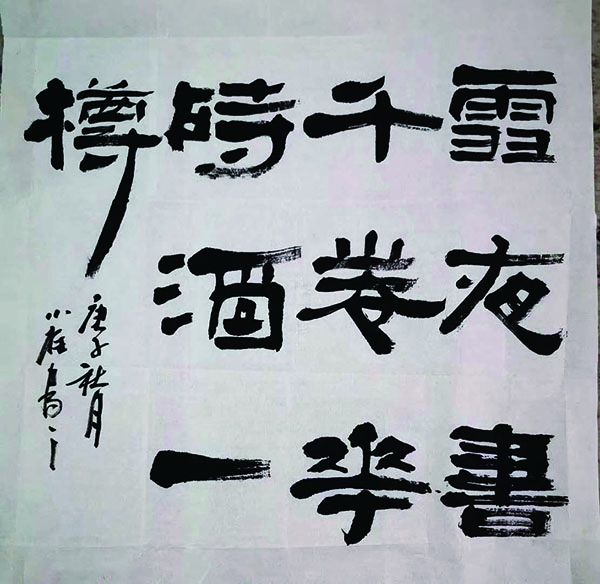 雪夜書
千卷花
時酒一
樽
庚子秋月
小崔書